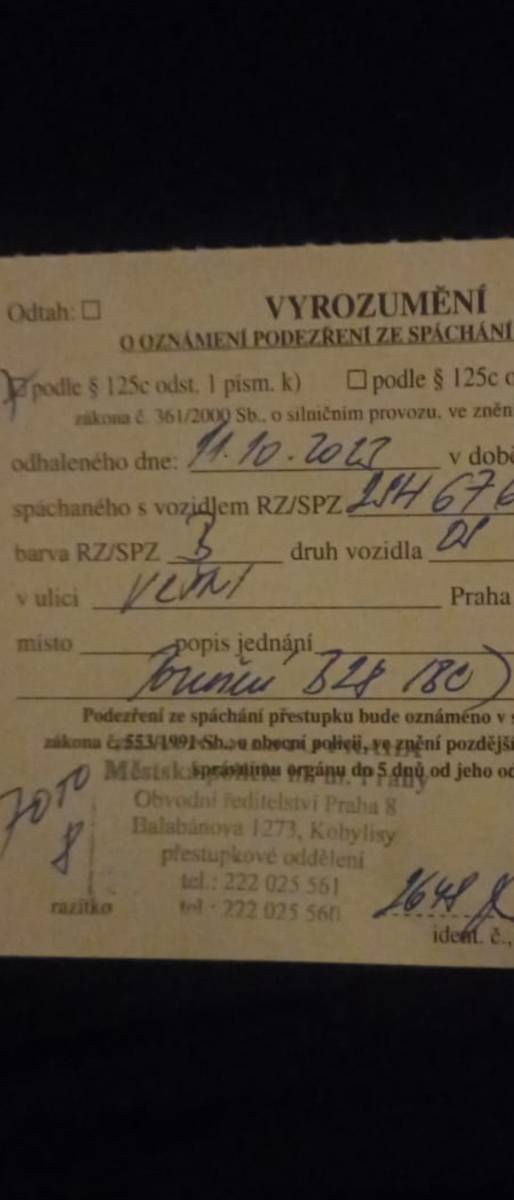 Odtah: ☐ VYROZUMĚNÍ
O OZNÁMENÍ PODEZŘENÍ ZE SPÁCHÁNÍ
podle § 125c odst. 1 písm. k) ☐ podle § 125c o
zákona č. 361/2000 Sb., o silničním provozu, ve zněn
odhaleného dne: 11.10.2023 v době
spáchaného s vozidlem RZ/SPZ
barva RZ/SPZ B druh vozidla OS
v ulici Praha
místo popis jednání
B28
Podezření ze spáchání přestupku bude oznámeno v s
zákona č. 553/1991 Sb., o obecní policii, ve znění pozdější
správnímu orgánu do 5 dnů od jeho od
Obvodní ředitelství Praha 8
Balabánova 1273, Kobylisy
přestupkové oddělení
FOTO
8
tel.: 222 025 561
razítko tel.: 222 025 560
2648
ident. č.,